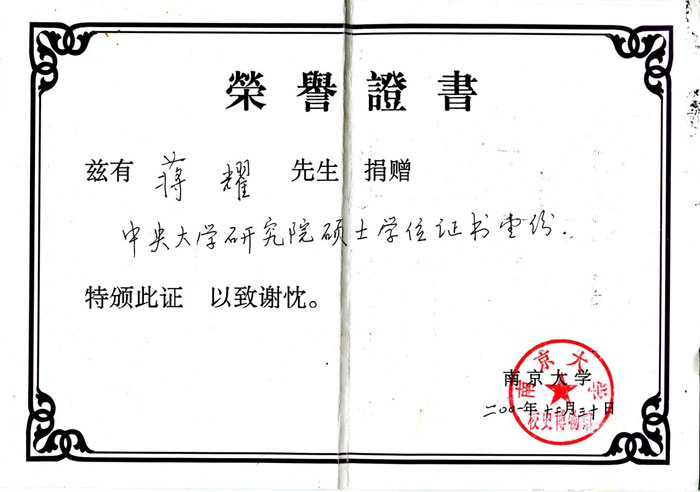 榮譽證書
兹有 蒋耀 先生 捐赠
中央大学研究院硕士学位证书壹份.
特颁此证 以致谢忱。
南京大学
二〇〇一年十二月三十日
南京大学
校史博物馆